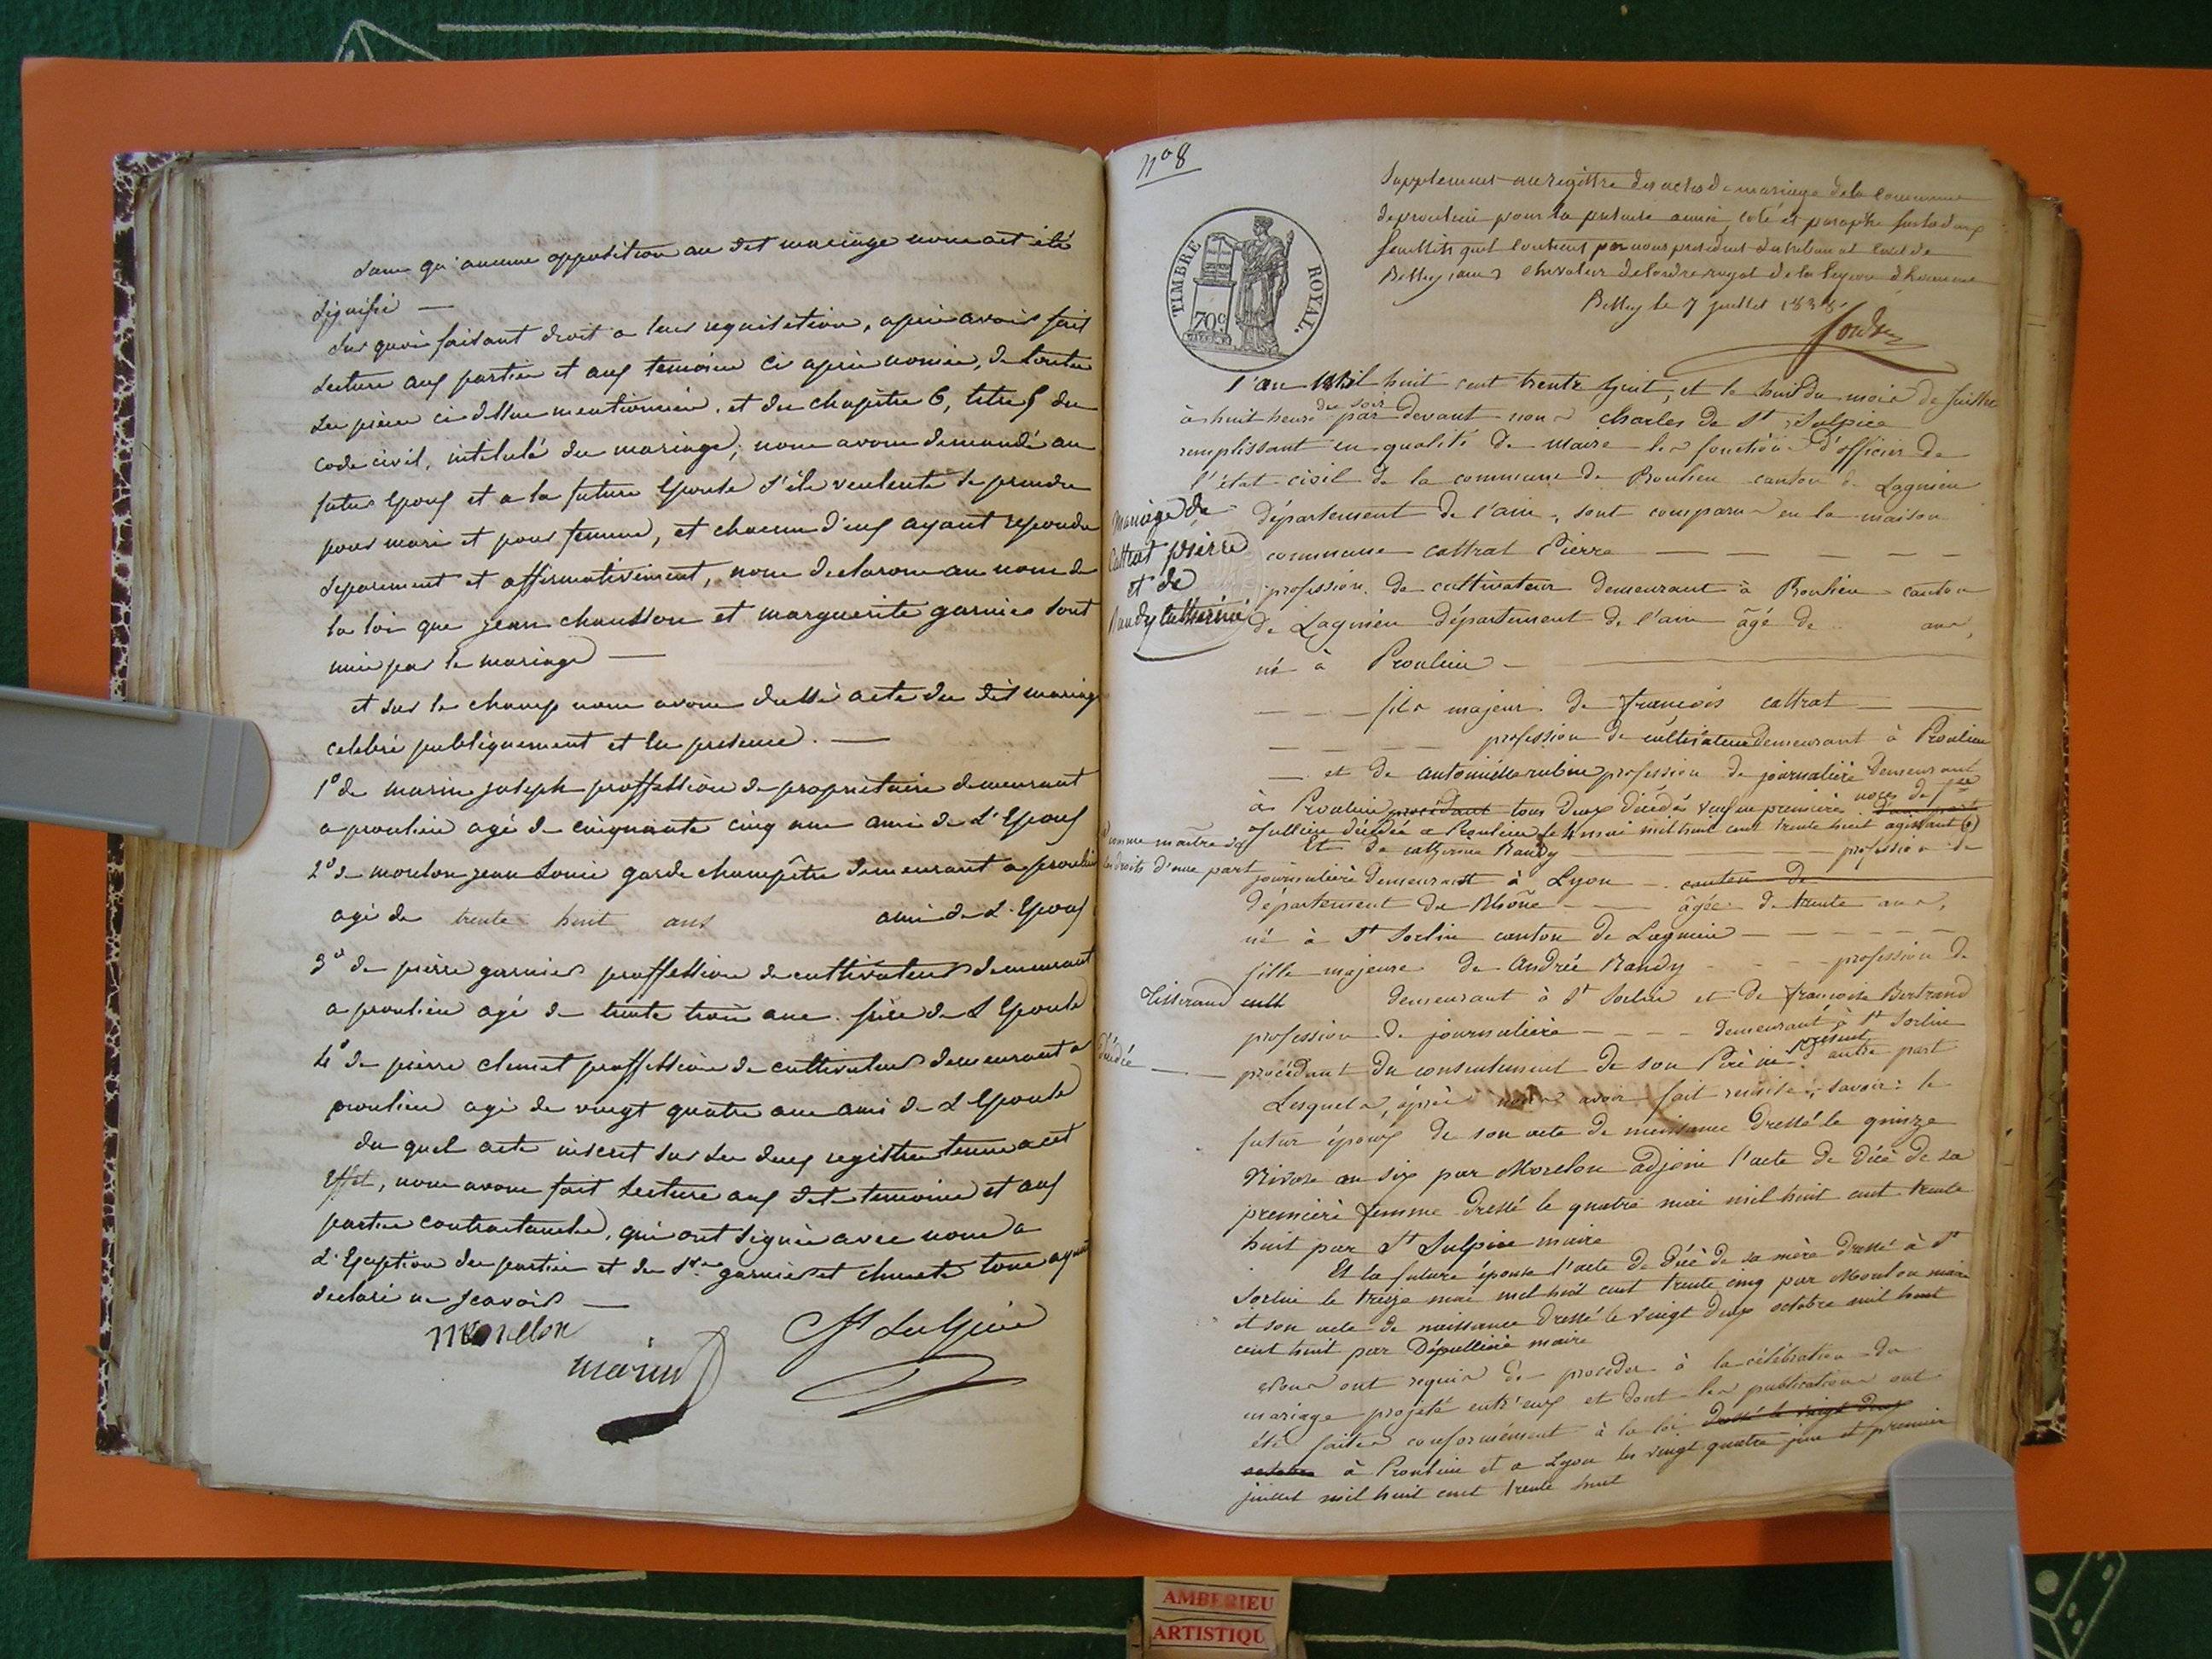 sans qu'aucune opposition au dit mariage nous ait été
signifié —
sur quoi faisant droit a leur requisition, apris avoir fait
lecture aux parties et aux temoins ci apris nomis, de toutes
les pièces ci dessus mentionnées, et du chapitre 6, titre 5 du
code civil, intitulé du mariage, nous avons demandé au
futur Epoux et a la future Epouse s'ils veulente se prendre
pour mari et pour femme, et chacun d'eux ayant repondu
separement et affirmativement, nous declarons au nom de
la loi que jean chausson et marguerite garnier sont
unis par le mariage —
et sur le champ nous avons dressé acte du dit mariage
celebré publiquement et en presence. —
1° de marin joseph proffession de propriétaire demeurant
a proulieu agé de cinquante cinq ans ami de L'Epoux
2° de morelon jean Louis garde champêtre demeurant a proulieu
agé de trente huit ans ami de L'Epoux
3° de pierre garnier proffession de cultivateur demeurant
a proulieu agé de trente trois ans frère de L'Epouse
4° de pierre clemet proffession de cultivateur demeurant a
proulieu agé de vingt quatre ans ami de L'Epouse
du quel acte inscrit sur les deux registres tenus a cet
Effet, nous avons fait lecture aux dits temoins et aux
parties contractantes, qui ont signés avec nous a
L'Exception des parties et des Srs garnier et clumet tous ayant
declaré ne scavoir —
morellon
marin
St Sulpice
n° 8
Supplement au registre des actes de mariage de la commune
de proulieu pour la presente année, coté et paraphé sur les deux
feuillets qu'il contient par nous president du tribunal civil de
Belley (ain) chevalier de l'ordre royal de la legion d'honneur
Belley le 7 juillet 1838
TIMBRE ROYAL.
70c
l'an mil huit cent trente huit, et le huit du mois de juillet
à huit heures du soir par devant nous Charles de St Sulpice
remplissant en qualité de maire les fonctions d'officier de
l'état civil de la commune de Proulieu canton de Lagnieu
département de l'ain, sont comparus en la maison
commune cattrat Pierre — — — —
profession de cultivateur demeurant à Proulieu canton
de Lagnieu département de l'ain âgé de ans,
né à Proulieu —
mariage de
Cattrat pierre
et de
Randy catherine
— — — fils majeur de françois cattrat —
— — — profession de cultivateur demeurant à Proulieu
— et de antoinette rubin profession de journalière demeurant
à Proulieu procédant tous deux décédés veuf en premières noces de
jullien décédée a Proulieu le 4 mai mil huit cent trente huit agissant
comme maitre de
ses droits d'une part
Et de catherine Randy — profession de
journalière demeurant à Lyon — canton de
département du Rhône — âgée de trente ans,
né à St Sorlin canton de Lagnieu — — —
fille majeure de André Randy — profession de
Tisserand cult demeurant à St Sorlin et de françoise Bertrand
profession de journalière — — — demeurant à St Sorlin
décédée — procédant du consentement de son Père ici présent d'autre part
Lesquels, après nous avoir fait remise, savoir: le
futur époux de son acte de naissance dressé le quinze
Nivose an six par Morelon adjoint l'acte de décè de sa
première femme dressé le quatre mai mil huit cent trente
huit par St Sulpice maire
Et la future épouse l'acte de décè de sa mère dressé à St
Sorlin le treize mai mil huit cent trente cinq par Moulon maire
et son acte de naissance dressé le vingt deux octobre mil huit
cent huit par Dépullière maire
Nous ont requis de procéder à la célébration du
mariage projeté entr'eux et dont les publications ont
été faites conformément à la loi dressé le vingt deux
octobre à Proulieu et a Lyon les vingt quatre juin et premier
juillet mil huit cent trente huit
AMBERIEU
ARTISTIQU